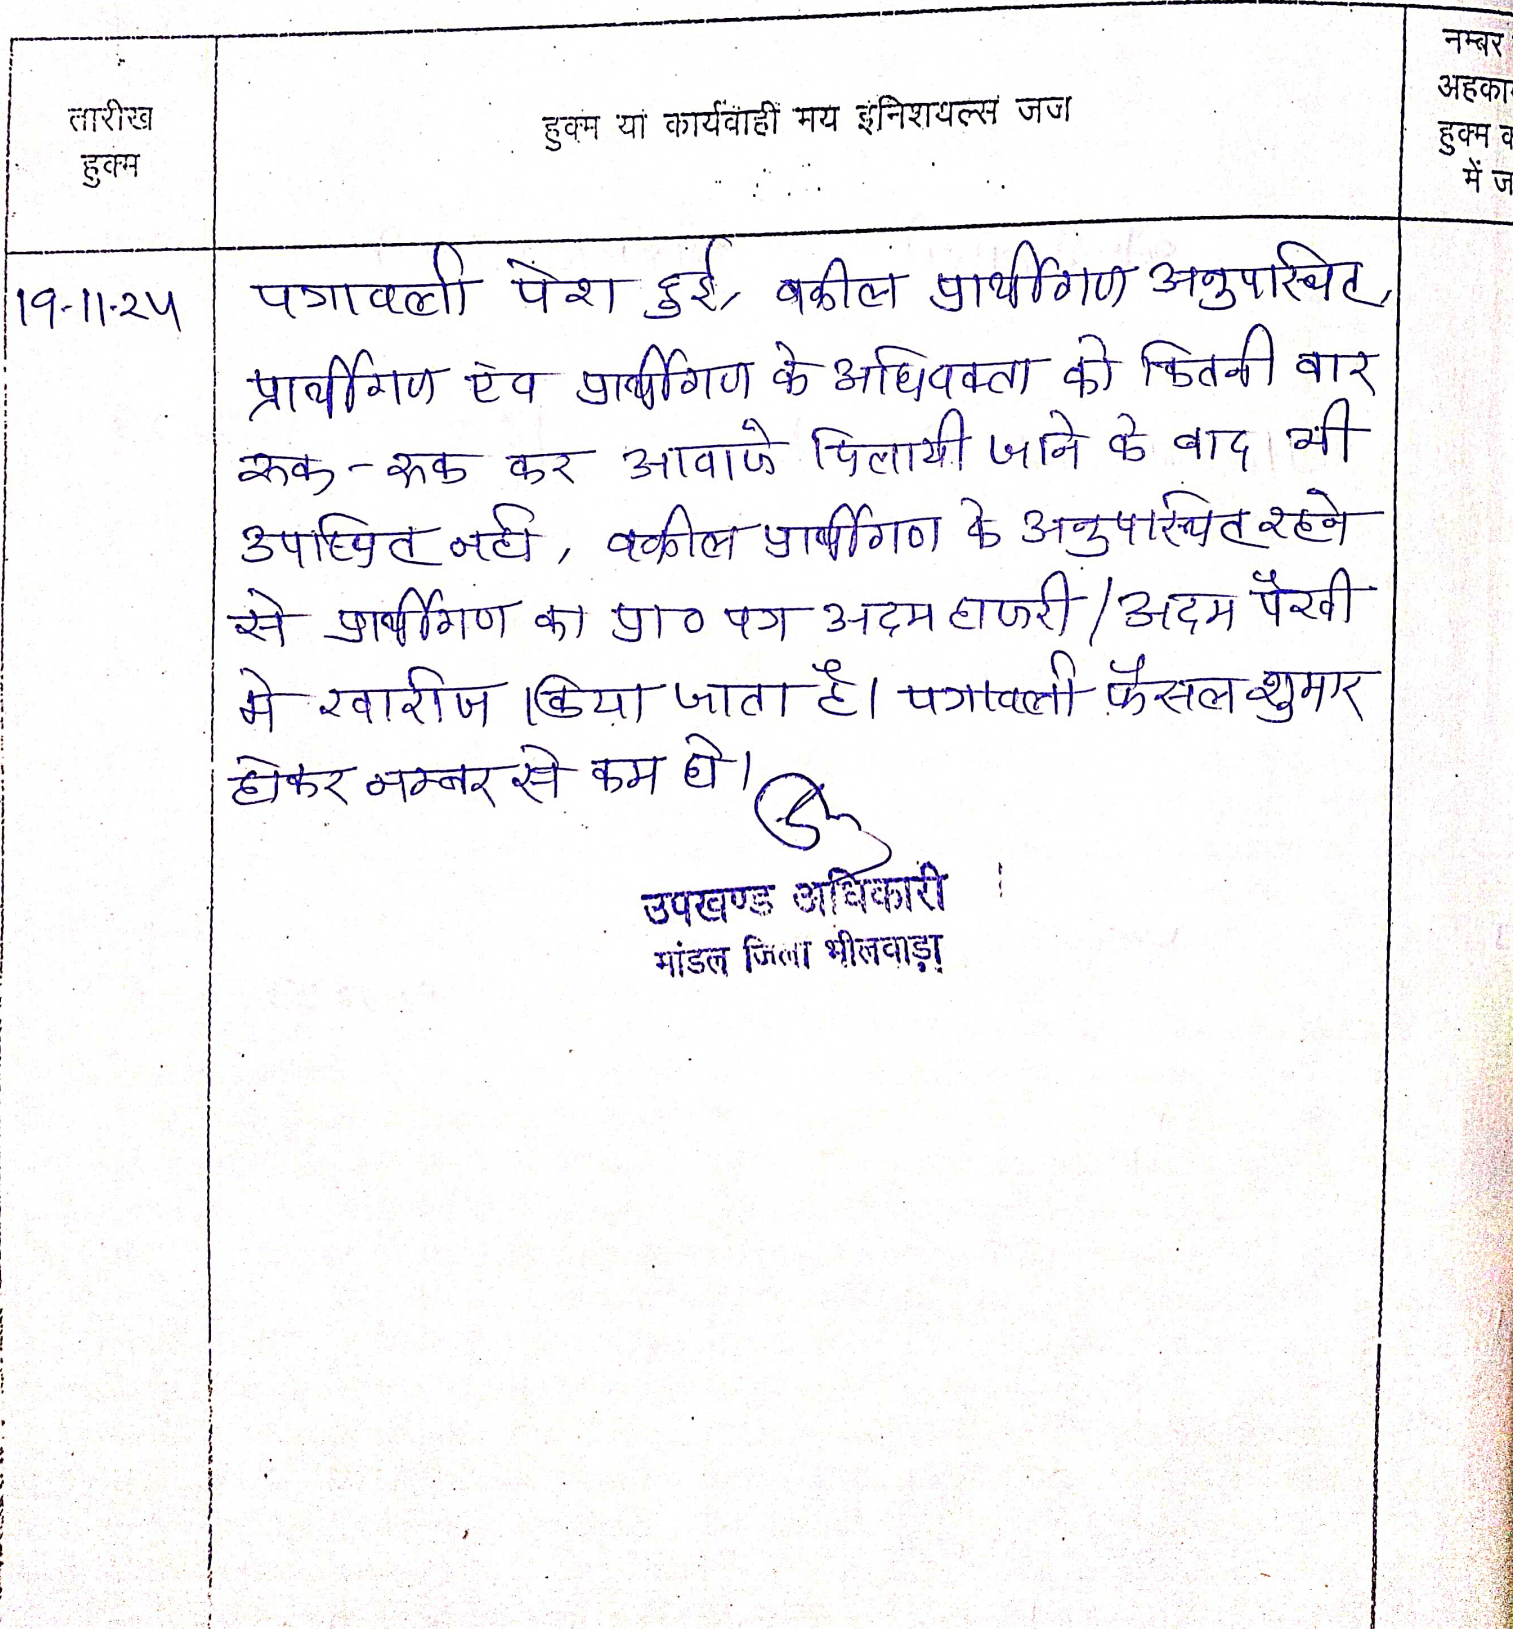 तारीख
हुक्म
हुक्म या कार्यवाही मय इनिशयल्स जज
नम्बर
अहका
हुक्म
में ज
19-11-24
पत्रावली पेश हुई, वकील प्रार्थीगण अनुपस्थित,
प्रार्थीगण एंव प्रार्थीगण के अधिवक्ता को कितनी बार
रूक-रूक कर आवाजे दिलायी जाने के बाद भी
उपस्थित नही, वकील प्रार्थीगण के अनुपस्थित रहने
से प्रार्थीगण का प्रा० पत्र अदम हाजरी/अदम पैरवी
मे खारीज किया जाता है। पत्रावली फैसल शुमार
होकर नम्बर से कम हो।
उपखण्ड अधिकारी
मांडल जिला भीलवाड़ा